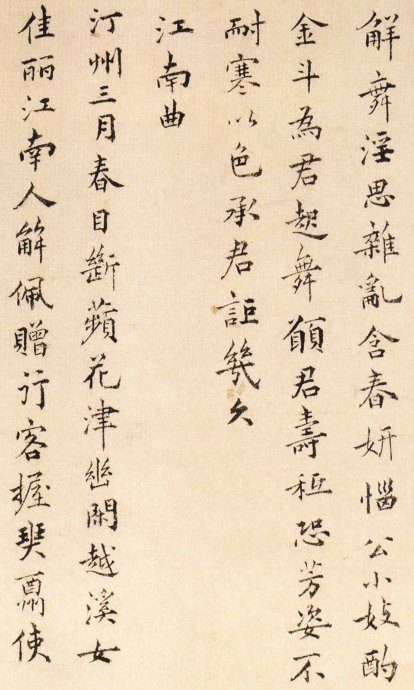 觧舞淫思雜亂含春妍惱公小妓酌
金斗為君起舞願君壽秪恐芳姿不
耐寒以色承君詎幾久
江南曲
汀州三月春目斷蘋花津幽閑越溪女
佳丽江南人觧佩贈行客握使